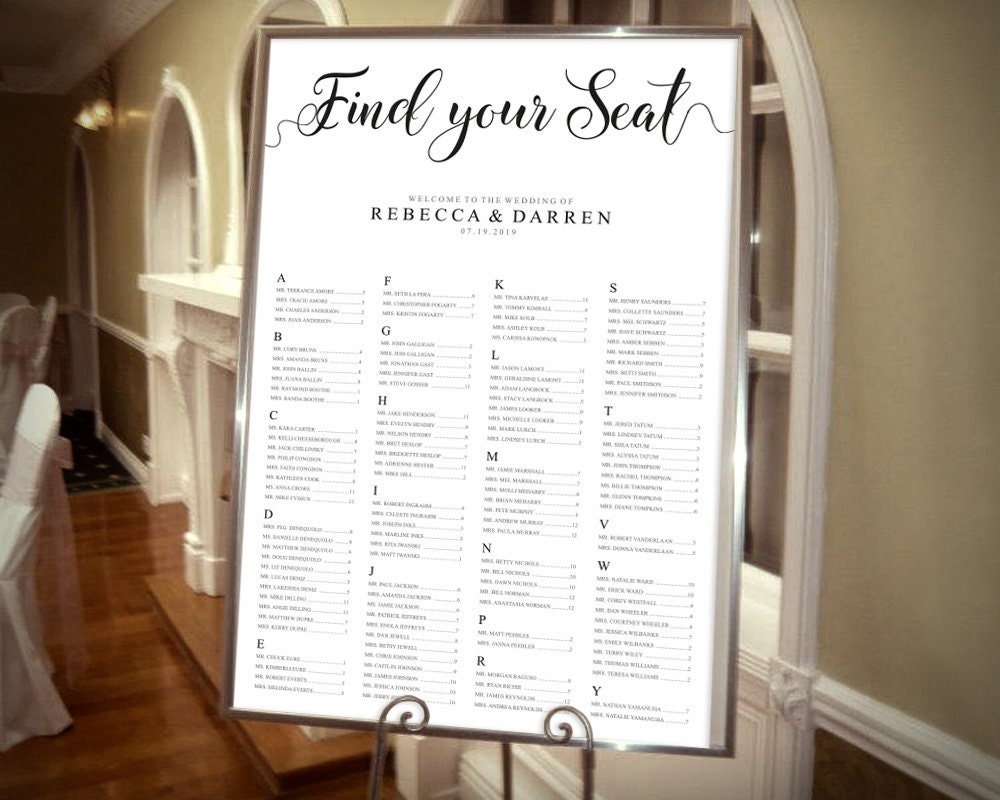 Find your Seat
WELCOME TO THE WEDDING OF
REBECCA & DARREN
07.19.2019
A
MR. TERRANCE AMORE
MRS. TRACIE AMORE
MR. CHARLES ANDERSON
MRS. JOAN ANDERSON ... 2
B
MR. CORY BRUNS ... 4
MRS. AMANDA BRUNS ... 4
MR. JOHN BALLIN ... 8
MRS. JUANA BALLIN ... 8
MR. RAYMOND BOOTHE ... 1
MRS. RANDA BOOTHE ... 1
C
MS. KARA CARTER ... 1
MS. KELLI CHEESEBOROUGH
MR. JACK CHILLINSKY ... 7
MR. PHILIP CONGDON
MRS. FAITH CONGDON
MS. KATHLEEN COOK
MS. ANNA CROWE ... 11
MR. MIKE
D
MRS. PEG DENEQUOLO
MS. DANIELLE DENEQUOLO
MR. MATTHEW DENEQUOLO
MR. DOUG DENEQUOLO
MS. LIZ DENEQUOLO
MR. LUCAS DENIZ
MRS. DENIZ
MR. MIKE DILLING ... 11
MRS. ANGIE DILLING ... 11
MR. MATTHEW DUPRE
MRS. KERRY DUPRE
E
MR. CHUCK EURE
MS. KIMBERLI EURE
MR. ROBERT EVERTS
MRS. MELINDA EVERTS
F
MR. SETH LA FERA ... 9
MR. CHRISTOPHER FOGARTY ... 7
MRS. KRISTIN FOGARTY ... 7
G
MR. JOHN GALLIGAN ... 2
MRS. JESS GALLIGAN ... 2
MR. JONATHAN GAST
MRS. JENNIFER GAST
MR. STEVE GOSSER ... 11
H
MR. JAKE HENDERSON ... 11
MRS. EVELYN HENDRY
MR. NELSON HENDRY
MR. BRUT HESLOP ... 7
MRS. BRIDGETTE HESLOP ... 7
MS. ADRIENNE HESTER ... 11
MR. MIKE HILL ... 2
I
MR. ROBERT INGRAHM
MRS. CELESTE INGRAHM
MR. JOSEPH INKS
MRS. MARLINE INKS
MRS. RITA IWANSKI
MR. MATT IWANSKI
J
MR. PAUL JACKSON
MRS. AMANDA JACKSON
MS. JAMIE JACKSON
MR. PATRICK JEFFREYS ... 7
MRS. ENOLA JEFFREYS ... 7
MR. DAN JEWELL
MRS. BETSY JEWELL
MR. CHRIS JOHNSON
MS. CAITLIN JOHNSON ... 9
MR. JAMES JOHNSON ... 10
MS. JESSICA JOHNSON ... 10
MR. JERRY ... 10
K
MS. TINA KARVELAS ... 11
MR. TOMMY KIMBALL
MR. MIKE KOLB ... 7
MRS. ASHLEY KOLB ... 7
MS. CARISSA KONOPACK
L
MR. JASON LAMONT ... 11
MRS. GERALDINE LAMONT ... 11
MR. ADAM LANGROCK ... 5
MRS. STACY LANGROCK ... 5
MR. JAMES LOOKER ... 9
MRS. MICHELLE LOOKER ... 9
MR. MARK LURCH ... 1
MRS. LINDSEY LURCH ... 1
M
MR. JAMIE MARSHALL ... 7
MRS. MEL MARSHALL ... 7
MRS. MOLLI MEHARRY ... 8
MR. BRIAN MEHARRY ... 8
MR. PETE MURPHY ... 1
MR. ANDREW MURRAY ... 12
MRS. PAULA MURRAY ... 12
N
MRS. BETTY NICHOLS ... 10
MR. BILL NICHOLS ... 10
MRS. DAWN NICHOLS ... 10
MR. BILL NORMAN ... 12
MRS. ANASTASIA NORMAN ... 12
P
MR. MATT PEEBLES ... 2
MRS. JANNA PEEBLES ... 2
R
MR. MORGAN RAGUSO
MR. RYAN RICHIE
MR. JAMES REYNOLDS ... 12
MRS. ANDREA REYNOLDS
S
MR. HENRY SAUNDERS ... 7
MRS. COLLETTE SAUNDERS ... 7
MRS. MEL SCHWARTZ ... 5
MR. DAVE SCHWARTZ ... 5
MRS. AMBER SEBBEN
MR. MARK SEBBEN
MR. RICHARD SMITH ... 9
MRS. BETTI SMITH ... 9
MR. PAUL SMITHSON ... 2
MRS. JENNIFER SMITHSON ... 2
T
MR. JERED TATUM
MRS. LINDSEY TATUM
MR. SHEA TATUM
MRS. ALYSSA TATUM
MR. JOHN THOMPSON
MRS. RACHEL THOMPSON
MS. BILLIE THOMPSON
MR. GLENN TOMPKINS
MRS. DIANE TOMPKINS
V
MR. ROBERT VANDERLAAN
MRS. DONNA VANDERLAAN
W
MRS. NATALIE WARD ... 10
MR. ERICK WARD ... 10
MR. COREY WESTFALL
MR. DAN WHEELER
MRS. COURTNEY WHEELER
MS. JESSICA WILBANKS
MS. EMILY WILBANKS
MR. TERRY WILEY
MR. THOMAS WILLIAMS ... 2
MRS. TERESA WILLIAMS ... 2
Y
MR. NATHAN YAMANUHA ... 7
MRS. NATALIE YAMANUHA ... 7